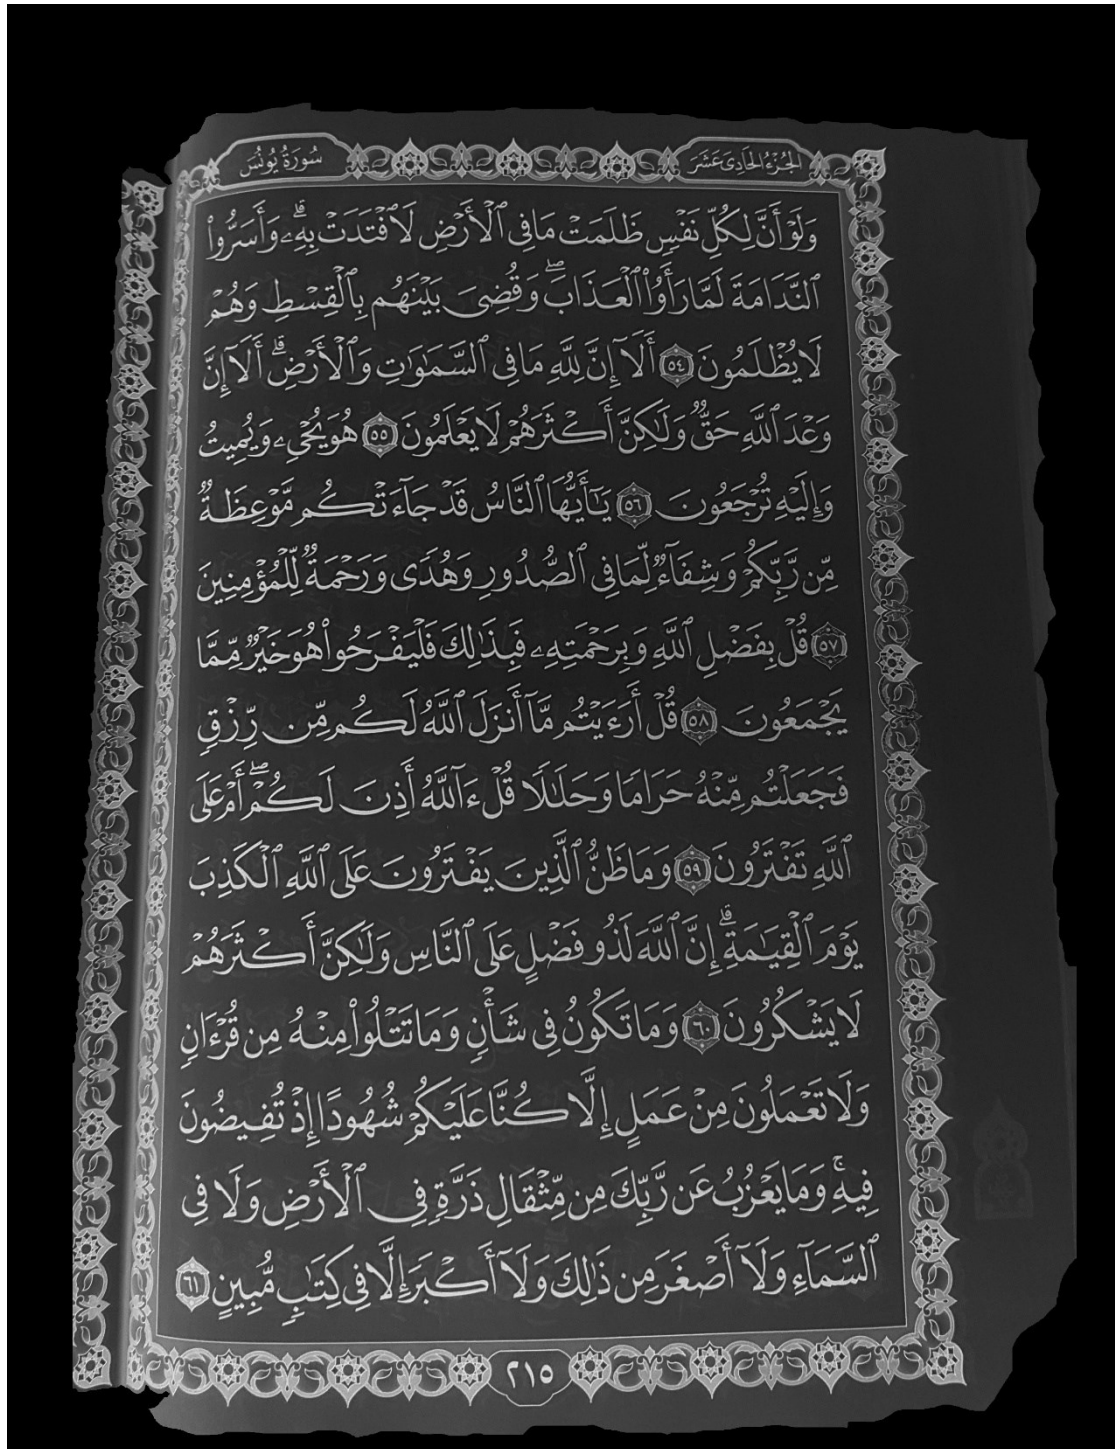 سُورَةُ يُونُسَ
الجُزْءُ الحَادِيَ عَشَرَ
وَلَوْ أَنَّ لِكُلِّ نَفْسٖ ظَلَمَتْ مَا فِي ٱلْأَرْضِ لَٱفْتَدَتْ بِهِۦۗ وَأَسَرُّواْ
ٱلنَّدَامَةَ لَمَّا رَأَوُاْ ٱلْعَذَابَۖ وَقُضِيَ بَيْنَهُم بِٱلْقِسْطِ وَهُمْ
لَا يُظْلَمُونَ ٥٤ أَلَآ إِنَّ لِلَّهِ مَا فِي ٱلسَّمَٰوَٰتِ وَٱلْأَرْضِۗ أَلَآ إِنَّ
وَعْدَ ٱللَّهِ حَقّٞ وَلَٰكِنَّ أَكْثَرَهُمْ لَا يَعْلَمُونَ ٥٥ هُوَ يُحْيِۦ وَيُمِيتُ
وَإِلَيْهِ تُرْجَعُونَ ٥٦ يَٰٓأَيُّهَا ٱلنَّاسُ قَدْ جَآءَتْكُم مَّوْعِظَةٞ
مِّن رَّبِّكُمْ وَشِفَآءٞ لِّمَا فِي ٱلصُّدُورِ وَهُدٗى وَرَحْمَةٞ لِّلْمُؤْمِنِينَ
٥٧ قُلْ بِفَضْلِ ٱللَّهِ وَبِرَحْمَتِهِۦ فَبِذَٰلِكَ فَلْيَفْرَحُواْ هُوَ خَيْرٞ مِّمَّا
يَجْمَعُونَ ٥٨ قُلْ أَرَءَيْتُم مَّآ أَنزَلَ ٱللَّهُ لَكُم مِّن رِّزْقٖ
فَجَعَلْتُم مِّنْهُ حَرَامٗا وَحَلَٰلٗا قُلْ ءَآللَّهُ أَذِنَ لَكُمْۖ أَمْ عَلَى
ٱللَّهِ تَفْتَرُونَ ٥٩ وَمَا ظَنُّ ٱلَّذِينَ يَفْتَرُونَ عَلَى ٱللَّهِ ٱلْكَذِبَ
يَوْمَ ٱلْقِيَٰمَةِۗ إِنَّ ٱللَّهَ لَذُو فَضْلٍ عَلَى ٱلنَّاسِ وَلَٰكِنَّ أَكْثَرَهُمْ
لَا يَشْكُرُونَ ٦٠ وَمَا تَكُونُ فِي شَأْنٖ وَمَا تَتْلُواْ مِنْهُ مِن قُرْءَانٖ
وَلَا تَعْمَلُونَ مِنْ عَمَلٍ إِلَّا كُنَّا عَلَيْكُمْ شُهُودًا إِذْ تُفِيضُونَ
فِيهِۚ وَمَا يَعْزُبُ عَن رَّبِّكَ مِن مِّثْقَالِ ذَرَّةٖ فِي ٱلْأَرْضِ وَلَا فِي
ٱلسَّمَآءِ وَلَآ أَصْغَرَ مِن ذَٰلِكَ وَلَآ أَكْبَرَ إِلَّا فِي كِتَٰبٖ مُّبِينٍ ٦١
٢١٥